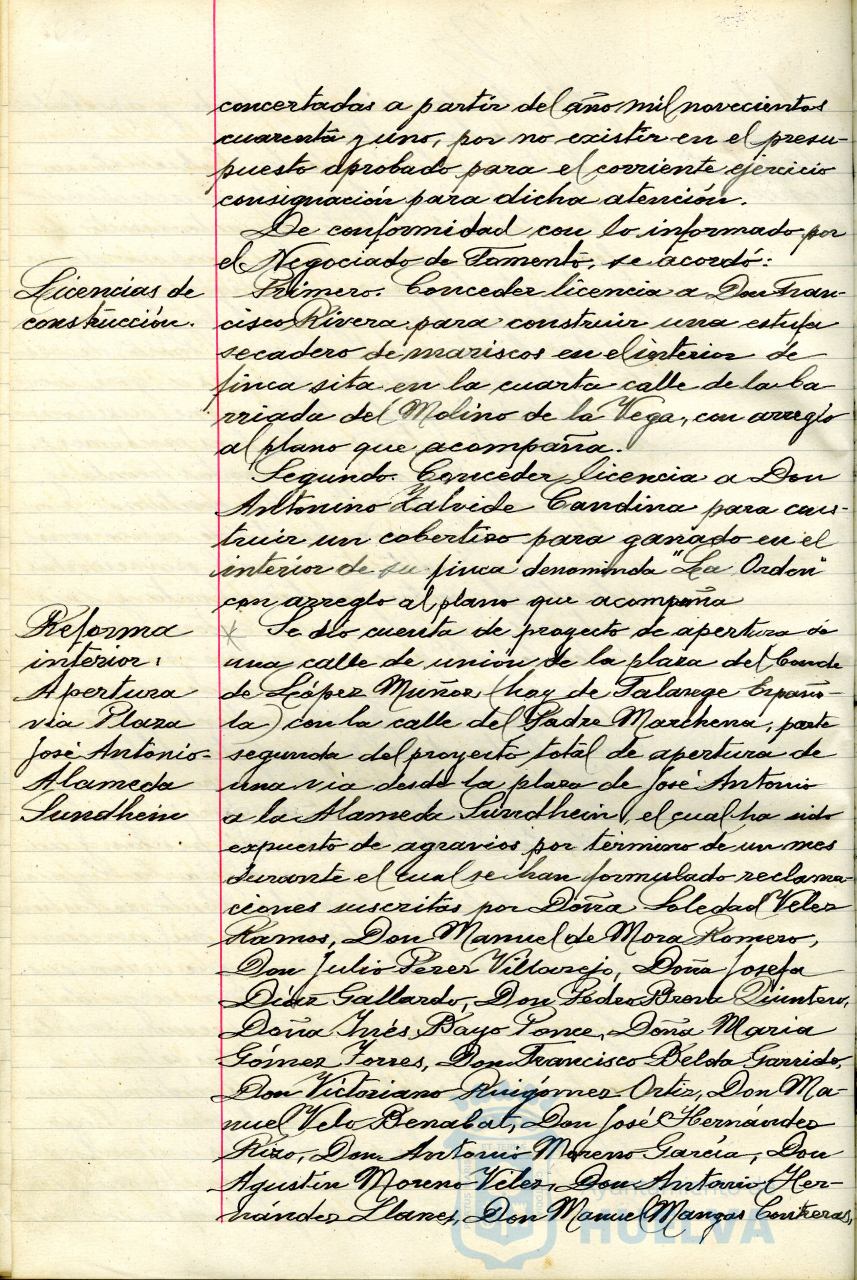 concertadas a partir del año mil novecientos
cuarenta y uno, por no existir en el presu-
puesto aprobado para el corriente ejercicio
consignación para dicha atención.
De conformidad con lo informado por
el Negociado de Fomento, se acordó:
Licencias de
construcción.
Primero. Conceder licencia a Don Fran-
cisco Rivera para construir una estufa
secadero de mariscos en el interior de
finca sita en la cuarta calle de la ba
rriada del Molino de la Vega, con arreglo
al plano que acompaña.
Segundo. Conceder licencia a Don
Antonino Zalvide Candina para cons-
truir un cobertizo para ganado en el
interior de su finca denominda "La Orden"
con arreglo al plano que acompaña
Reforma
interior:
Apertura
via Plaza
José Antonio-
Alameda
Sundhein
Se dio cuenta de proyecto de apertura de
una calle de unión de la plaza del Conde
de López Muñoz (hoy de Falange Españo-
la) con la calle del Padre Marchena, parte
segunda del proyecto total de apertura de
una via desde la plaza de José Antonio
a la Alameda Sundhein, el cual ha sido
expuesto de agravios por término de un mes
durante el cual se han formulado reclama-
ciones suscritas por Doña Soledad Velez
Ramos, Don Manuel de Mora Romero,
Don Julio Perez Villarejo, Doña Josefa
Díaz Gallardo, Don Pedro Quintero,
Doña Inés Bayo Ponce, Doña Maria
Gómez Torres, Don Francisco Belda Garrido,
Don Victoriano Ruigómez Ortiz, Don Ma-
nuel Velo Benabat, Don José Hernández
Rizo, Don Antonio Moreno García, Don
Agustin Moreno Vélez, Don Antonio Her-
nández Llanes, Don Manuel Mangas Contreras,
Ayuntamiento de
HUELVA